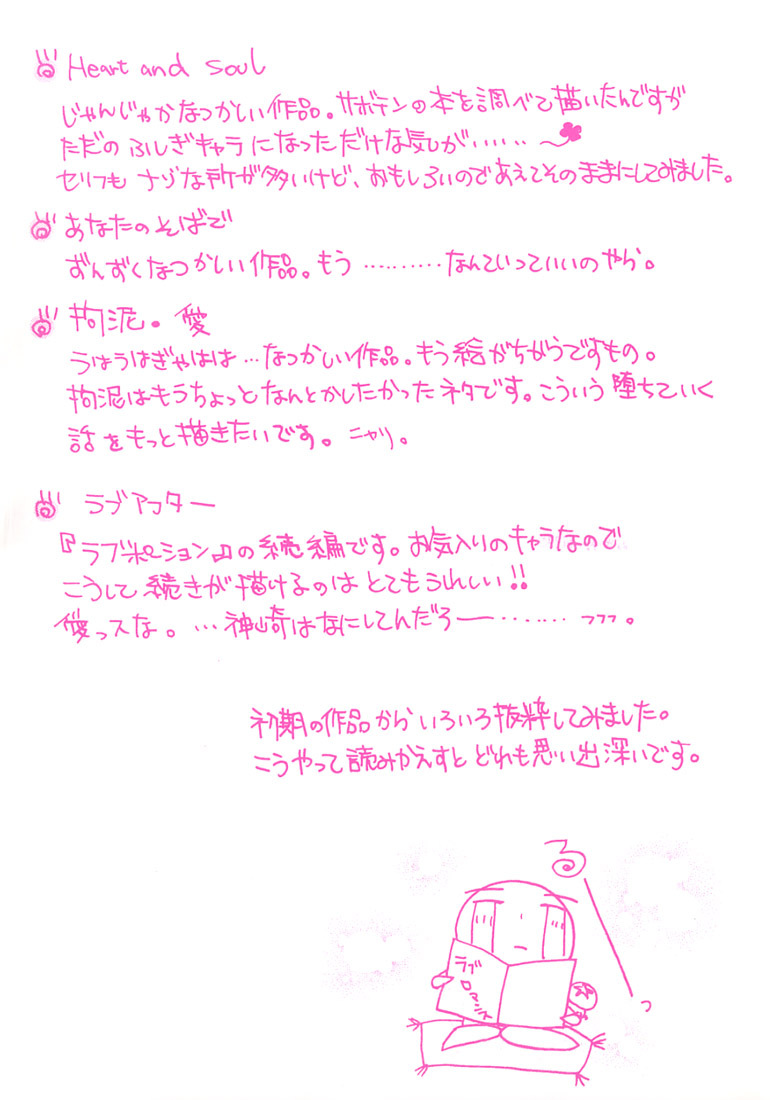 Heart and Soul
じゃんじゃかなつかしい作品。サボテンの本を調べて描いたんですが
ただの ふしぎキャラ になっただけな気が……
セリフも ナゾな所が多いけど、おもしろいのであえてそのままにしてみました。
あなたのそばで
ずんずくなつかしい作品。もう ………なんていっていいのやら。
拘泥・愛
うはうはぎゃはは…なつかしい作品。もう絵がちがうですもの。
拘泥はもうちょっとなんとかしたかったネタです。こういう堕ちていく
話をもっと描きたいです。ニヤリ。
ラブアフター
『ラブポーション』の続編です。お気入りのキャラなので
こうして続きが描けるのは とてもうれしい!!
愛っスな。…神崎はなにしてんだろー……フフフ。
初期の作品から いろいろ抜粋してみました。
こうやって読みかえすと どれも思い出深いです。
る
っ
ラブ